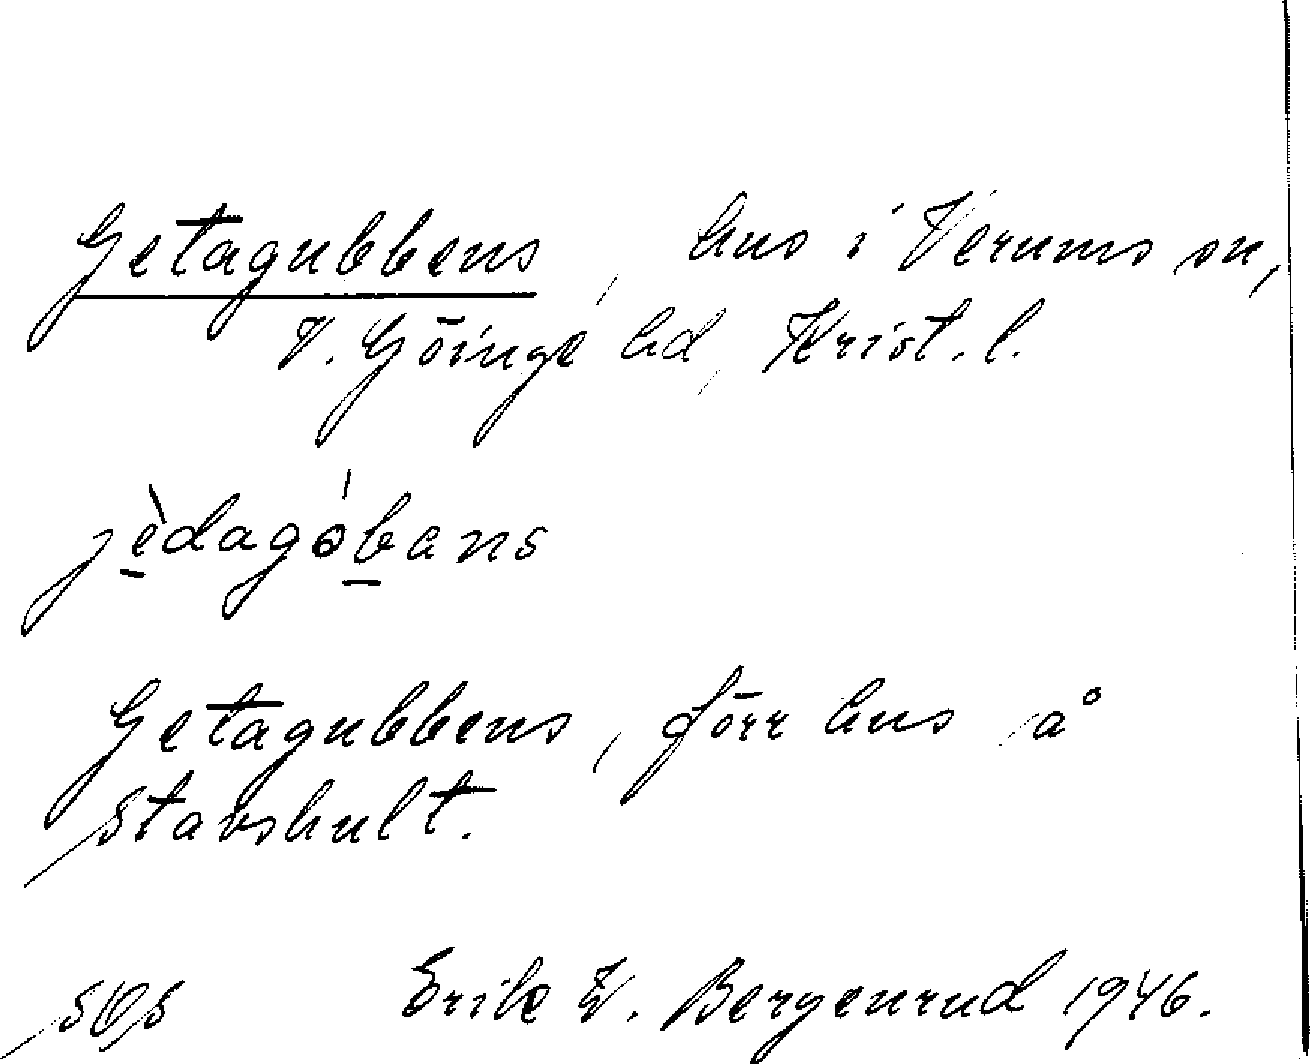 Getagubbens, hus i Verums sn,
V. Göinge hd, Krist. l.
jèdagóbans
Getagubbens, förr hus å
Stavshult.
SOS Erik W. Bergenrud 1946.